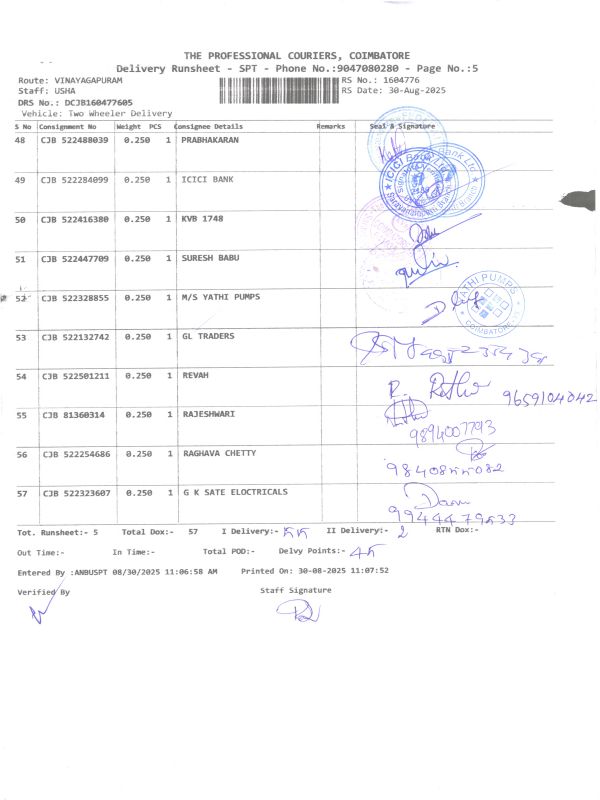 THE PROFESSIONAL COURIERS, COIMBATORE
Delivery Runsheet - SPT - Phone No.:9047080280 - Page No.:5
Route: VINAYAGAPURAM RS No.: 1604776
Staff: USHA RS Date: 30-Aug-2025
DRS No.: DCJB160477605
Vehicle: Two Wheeler Delivery
S No Consignment No Weight PCS Consignee Details Remarks Seal & Signature
48 CJB 522488039 0.250 1 PRABHAKARAN
49 CJB 522284099 0.250 1 ICICI BANK
ICICI Bank Ltd
50 CJB 522416380 0.250 1 KVB 1748
51 CJB 522447709 0.250 1 SURESH BABU
52 CJB 522328855 0.250 1 M/S YATHI PUMPS
YATHI PUMPS
COIMBATORE
53 CJB 522132742 0.250 1 GL TRADERS
54 CJB 522501211 0.250 1 REVAH
9659104042
55 CJB 81360314 0.250 1 RAJESHWARI
9894007793
56 CJB 522254686 0.250 1 RAGHAVA CHETTY
57 CJB 522323607 0.250 1 G K SATE ELOCTRICALS
Tot. Runsheet:- 5 Total Dox:- 57 I Delivery:- 55 II Delivery:- 2 RTN Dox:-
Out Time:- In Time:- Total POD:- Delvy Points:- 45
Entered By :ANBUSPT 08/30/2025 11:06:58 AM Printed On: 30-08-2025 11:07:52
Verified By Staff Signature